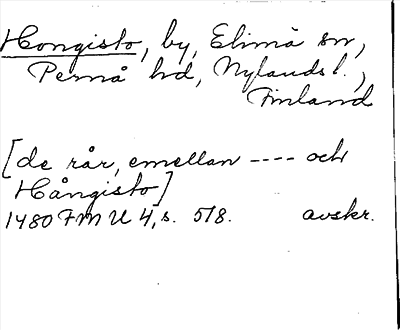 Hongisto, by, Elimä sn,
Pernå hd, Nylands l.,
Finland
[de rår, emellan ---- och
Hångisto]
1480 FMU 4, s. 518. avskr.